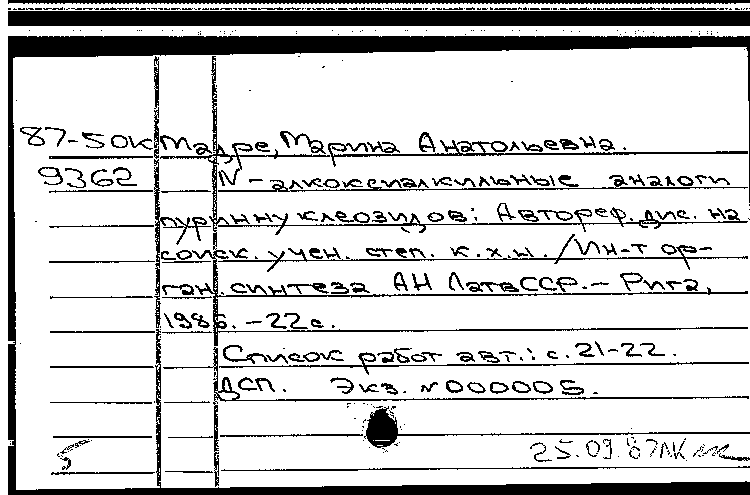 87-50к Мадре, Марина Анатольевна.
9362 N-алкоксиалкильные аналоги
пуриннуклеозидов: Автореф. дис. на
соиск. учен. степ. к.х.н. / Ин-т ор-
ган. синтеза АН ЛатвССР. - Рига,
1986. - 22 с.
Список работ авт.: с. 21-22.
ДСП. Экз. N 000005.
5 25.09.87